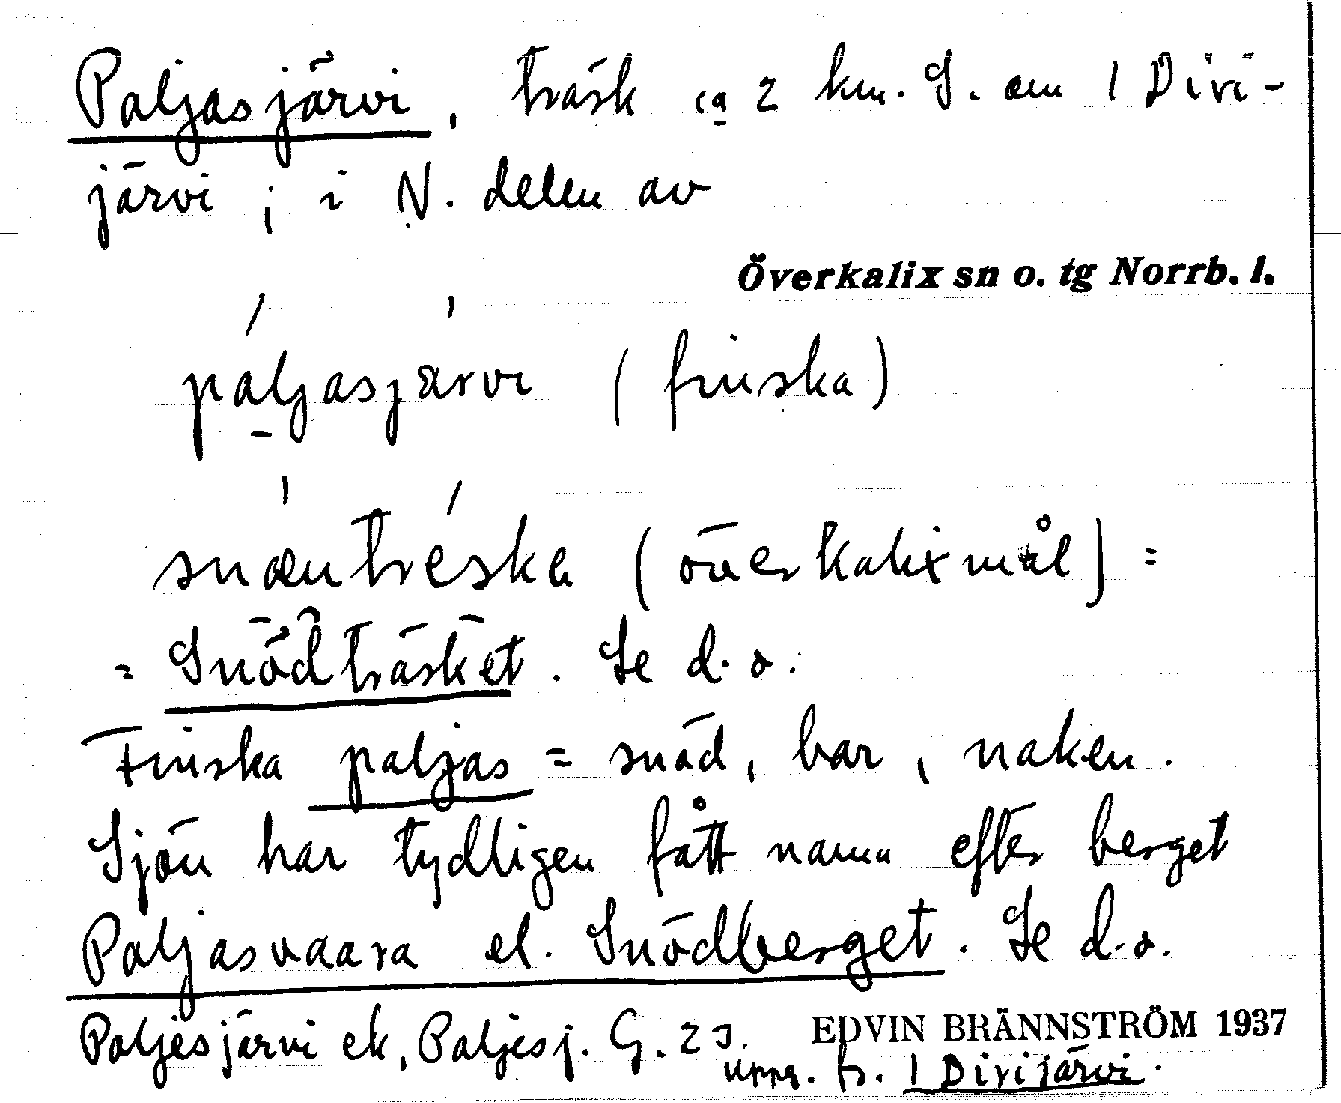 Paljasjärvi, träsk ca 2 km. S. om 1 Divi-
järvi; i N. delen av
Överkalix sn o. tg Norrb. l.
páljasjärvi (finska)
snœntréska (överkalixmål) =
= Snödträsket. Se d. o.
Finska paljas = snöd, bar, naken.
Sjön har tydligen fått namn efter berget
Paljasvaara el. Snödberget. Se d.o.
Paljesjärvi ek, Paljesj. G. 23.
EDVIN BRÄNNSTRÖM 1937
uppg. fr. 1 Divijärvi.